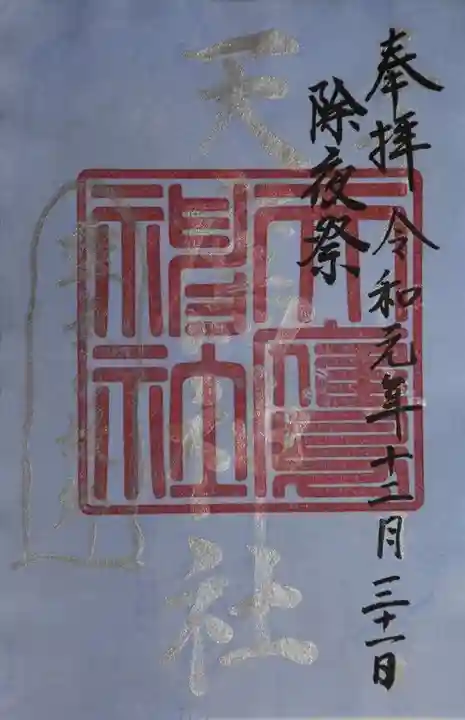 奉拝 令和元年十二月三十一日
除夜祭
天
社
神社